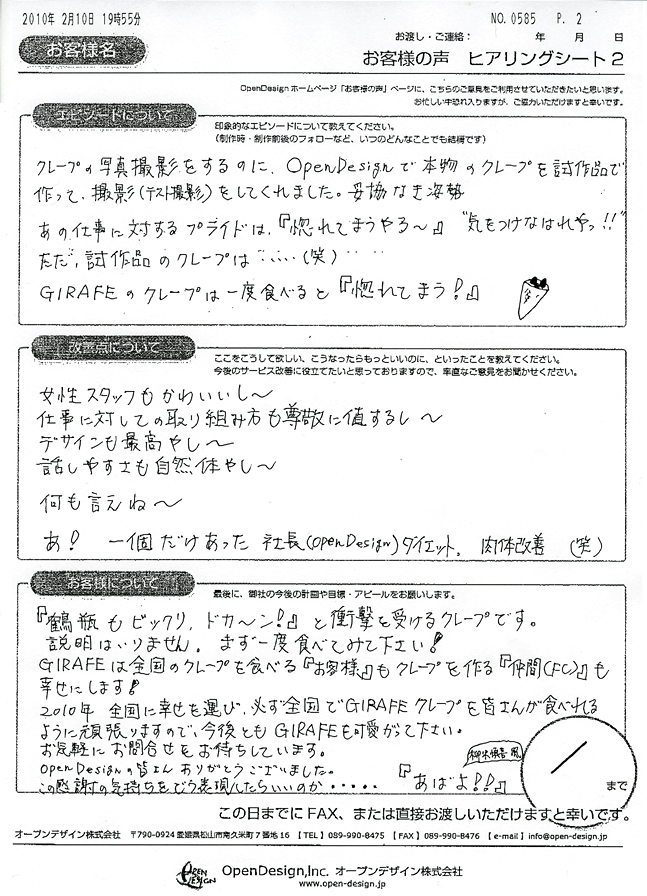 2010年 2月10日 19時55分 NO. 0585 P. 2
お渡し・ご連絡： 年 月 日
お客様名
お客様の声 ヒアリングシート2
OpenDesignホームページ「お客様の声」ページに、こちらのご意見をご利用させていただきたいと思います。
お忙しい中恐れ入りますが、ご協力いただけますと幸いです。
エピソードについて
印象的なエピソードについて教えてください。
（制作時・制作前後のフォローなど、いつのどんなことでも結構です）
クレープの写真撮影をするのに、OpenDesignで本物のクレープを試作品で
作って、撮影(テスト撮影)をしてくれました。妥協なき姿勢
あの仕事に対するプライドは、『惚れてまうやろ〜』 "気をつけなはれやっ!!"
ただ、試作品のクレープは・・・・・(笑)
GIRAFEのクレープは一度食べると『惚れてまう!』
改善点について
ここをこうして欲しい、こうなったらもっといいのに、といったことを教えてください。
今後のサービス改善に役立てたいと思っておりますので、率直なご意見をお聞かせください。
女性スタッフもかわいいし〜
仕事に対しての取り組み方も尊敬に値するし〜
デザインも最高やし〜
話しやすさも自然体やし〜
何も言えね〜
あ! 一個だけあった 社長(OpenDesign)ダイエット、肉体改善 (笑)
お客様について
最後に、御社の今後の計画や目標・アピールをお願いします。
『鶴瓶もビックリ、ドカ〜ン!』と衝撃を受けるクレープです。
説明はいりません。まず一度食べてみて下さい!
GIRAFEは全国のクレープを食べる『お客様』もクレープを作る『仲間(FC)』も
幸せにします!
2010年 全国に幸せを運び、必ず全国でGIRAFEクレープを皆さんが食べれる
ように頑張りますので、今後ともGIRAFEを可愛がって下さい。
お気軽にお問合せをお待ちしています。
OpenDesignの皆さん ありがとうございました。
この感謝の気持ちをどう表現したらいいのか・・・・・
柳沢慎吾風
『あばよ!!』
／ まで
この日までにFAX、または直接お渡しいただけますと幸いです。
オープンデザイン株式会社 〒790-0924 愛媛県松山市南久米町7番地16 【TEL】089-990-8475 【FAX】089-990-8476 【e-mail】info@open-design.jp
OPEN DESIGN
OpenDesign,Inc. オープンデザイン株式会社
www.open-design.jp